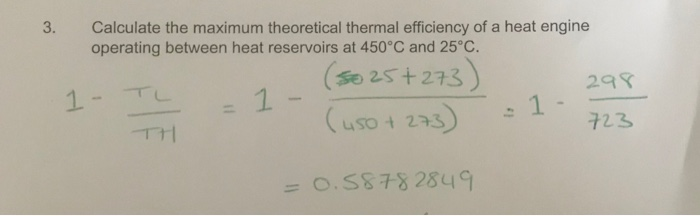 3. Calculate the maximum theoretical thermal efficiency of a heat engine
operating between heat reservoirs at 450°C and 25°C.
1 - TL/TH = 1 - (25+273)/(450+273) = 1 - 298/723
= 0.58782849